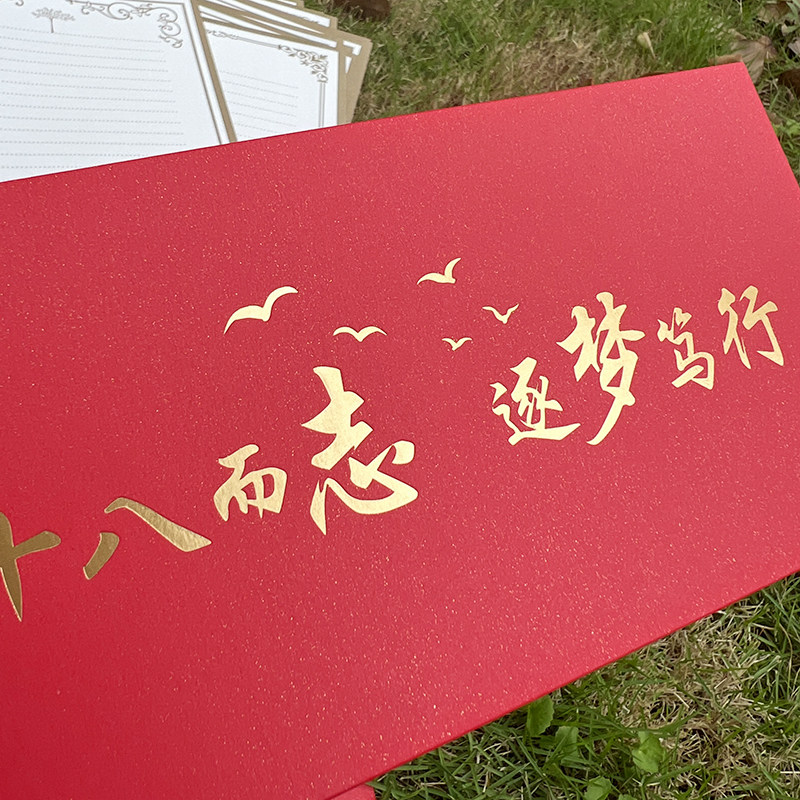 十八而志 逐梦笃行